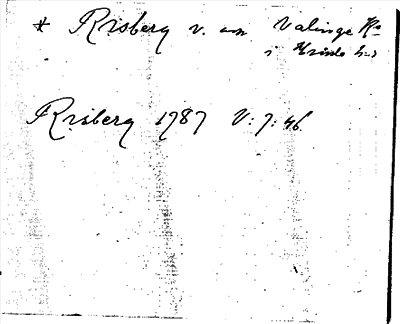 * Risberg v. om Valinge K:a
i
Risberg 1787 V: 7: 46.